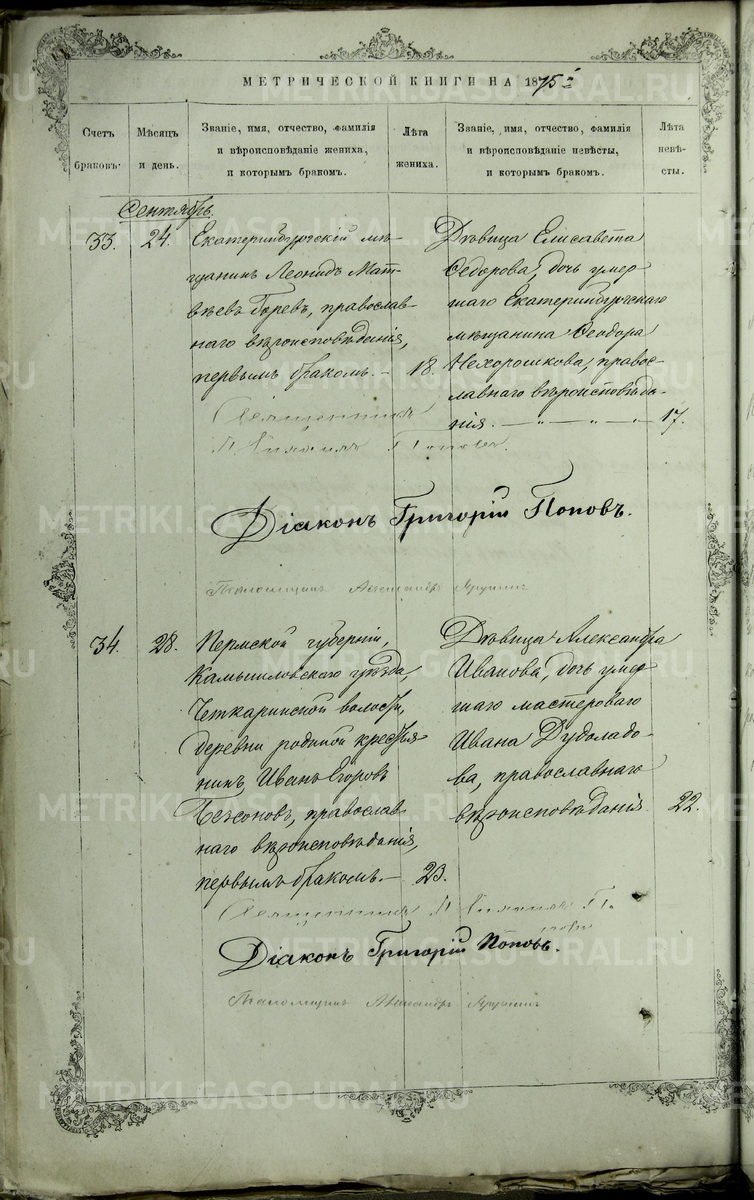 МЕТРИЧЕСКОЙ КНИГИ НА 1875й
Счетъ браковъ.
Мѣсяцъ и день.
Званіе, имя, отчество, фамилія
и вѣроисповѣданіе жениха,
и которымъ бракомъ.
Лѣта жениха.
Званіе, имя, отчество, фамилія
и вѣроисповѣданіе невѣсты,
и которымъ бракомъ.
Лѣта невѣсты.
Сентябрь.
33. 24.
Екатеринбургскій мѣ-
щанинъ Леонидъ Мат-
вѣевъ православ-
наго вѣроисповѣданія,
первымъ бракомъ. — 18.
Дѣвица Елисавета
Ѳедорова, дочь умер
шаго Екатеринбургскаго
мѣщанина Ѳеодора
Нехорошкова, правос-
лавнаго вѣроисповѣда-
нія. — „ — „ — 17.
Священникъ
Поповъ.
Діаконъ Григорій Поповъ.
Псаломщикъ Александръ
34. 28.
Пермской губерніи,
Камышловскаго уѣзда,
Четкаринской волости,
деревни родиной кресть-
янинъ, Иванъ Егоровъ
православ
наго вѣроисповѣданія,
первымъ бракомъ. — 23.
Дѣвица Александра
Иванова, дочь умер
шаго мастероваго
Ивана Дудоладо-
ва, православнаго
вѣроисповѣданія 22.
Священникъ
Діаконъ Григорій Поповъ.
Псаломщикъ Александръ
METRIKI.GASO-URAL.RU